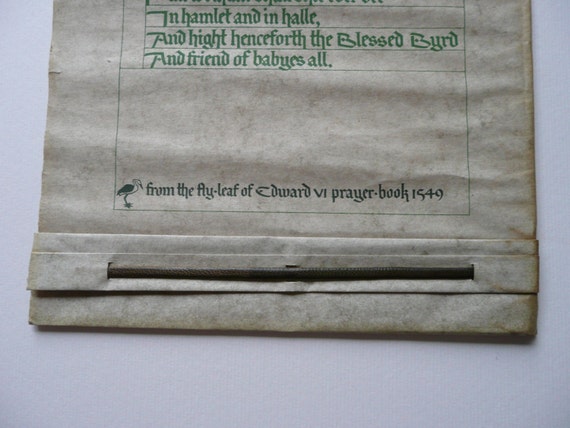 In hamlet and in halle,
And hight henceforth the Blessed Byrd
And friend of babyes all.
from the fly-leaf of Edward VI prayer-book 1549